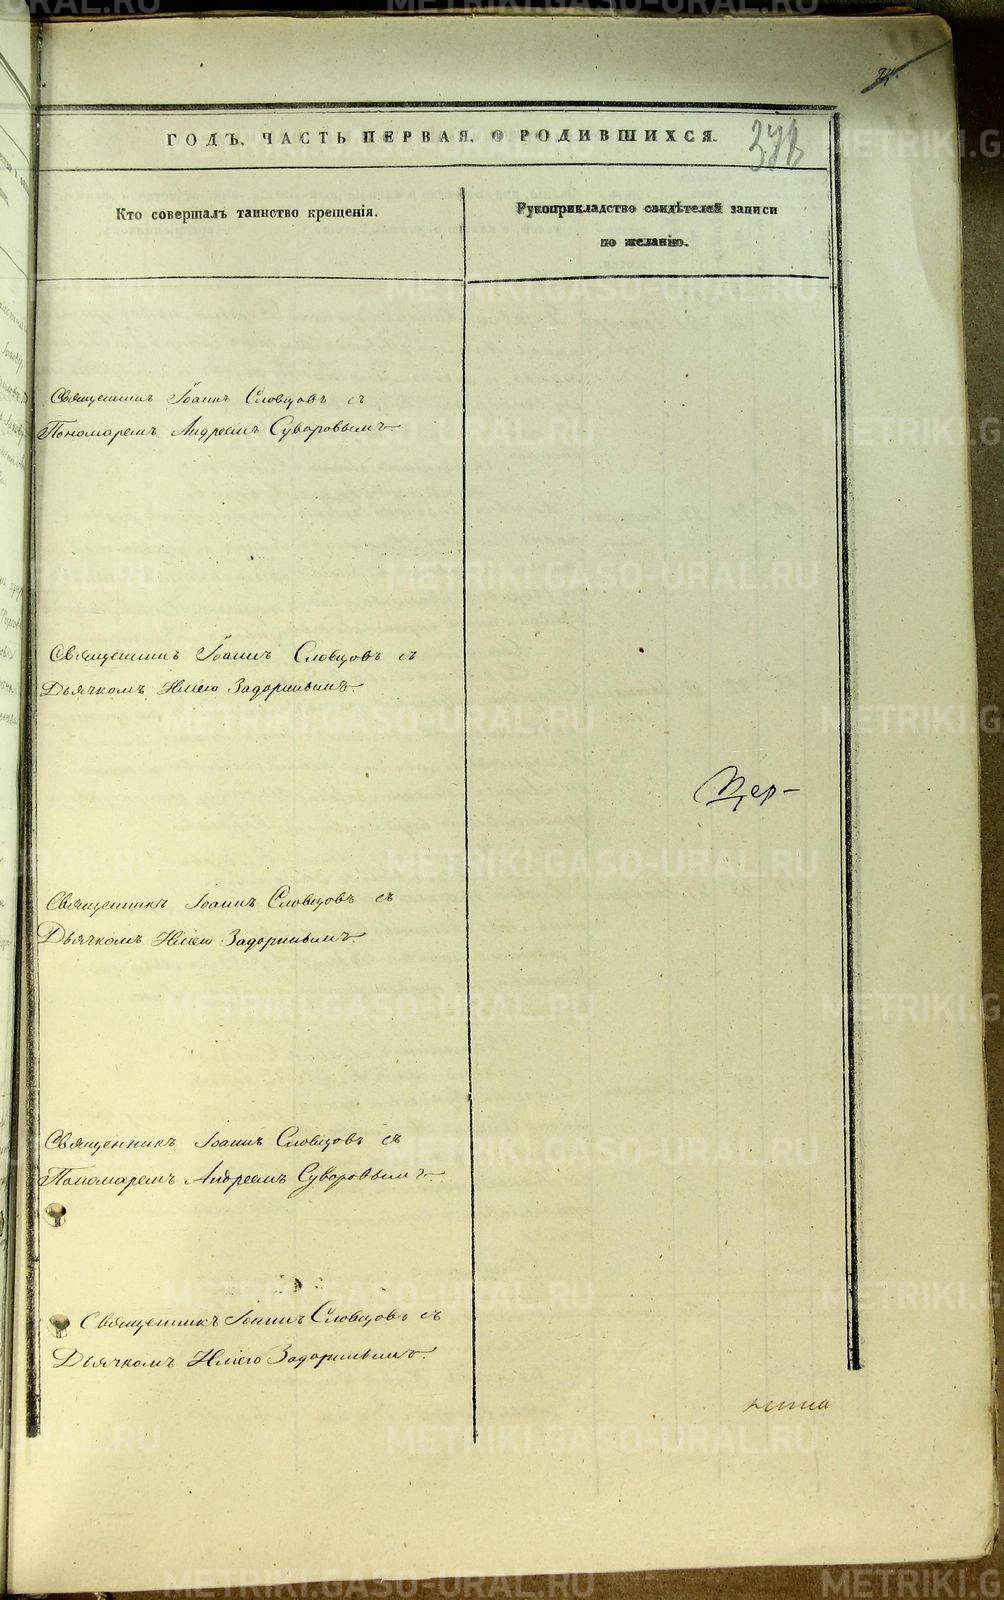 ГОДЪ, ЧАСТЬ ПЕРВАЯ, О РОДИВШИХСЯ.
Кто совершалъ таинство крещенія.
Рукоприкладство свидѣтелей записи
по желанію.
Священникъ Іоаннъ Словцовъ съ
Пономаремъ Андреемъ Суворовымъ
Священникъ Іоаннъ Словцовъ съ
Дьячкомъ Иліею Задоринымъ.
Цер-
Священникъ Іоаннъ Словцовъ съ
Дьячкомъ Иліею Задоринымъ.
Священникъ Іоаннъ Словцовъ съ
Пономаремъ Андреемъ Суворовымъ.
Священникъ Іоаннъ Словцовъ съ
Дьячкомъ Иліею Задоринымъ.
METRIKI.GASO-URAL.RU